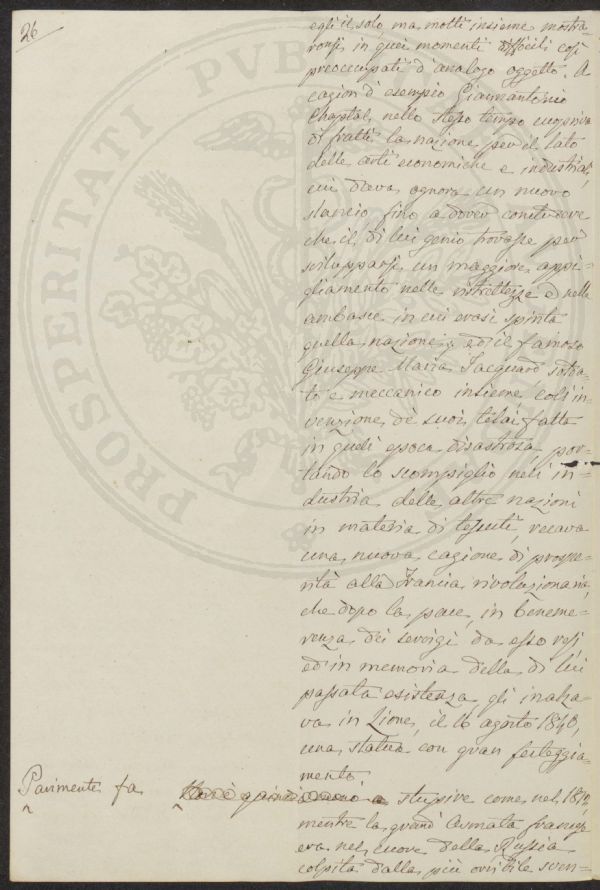 26
egli il solo, ma molti insieme mostra-
ronsi in quei momenti difficili così
preoccupati d'analogo oggetto. A
cagion d'esempio Gianantonio
Chaptal, nello stesso tempo
di fatti la nazione pel lato
delle arti economiche e industriali,
cui dava ognora un nuovo
slancio fino a dover
che il di lui genio trovasse per
svilupparsi un maggiore appi-
gliamento nelle ristrettezze e nelle
ambasce in cui erasi spinta
quella nazione; ed il famoso
Giuseppe Maria Jacquard
e meccanico insieme, coll'in-
venzione de' suoi telai fatta
in quell'epoca disastrosa, por-
tando lo scompiglio nell'in-
dustria delle altre nazioni
in materia di tessuti, recava
una nuova cagione di prospe-
rità alla Francia rivoluzionaria,
che dopo la pace, in beneme-
renza dei servigi da esso resi,
ed in memoria della di lui
passata esistenza gli inalza-
va in Lione, il 16 agosto 1840,
una statua con gran festeggia-
mento.
Parimente fa stupire come nel 1812,
mentre la grand'Armata francese
era nel cuore della Russia
colpita dalla più orribile sven-
PROSPERITATI PUB